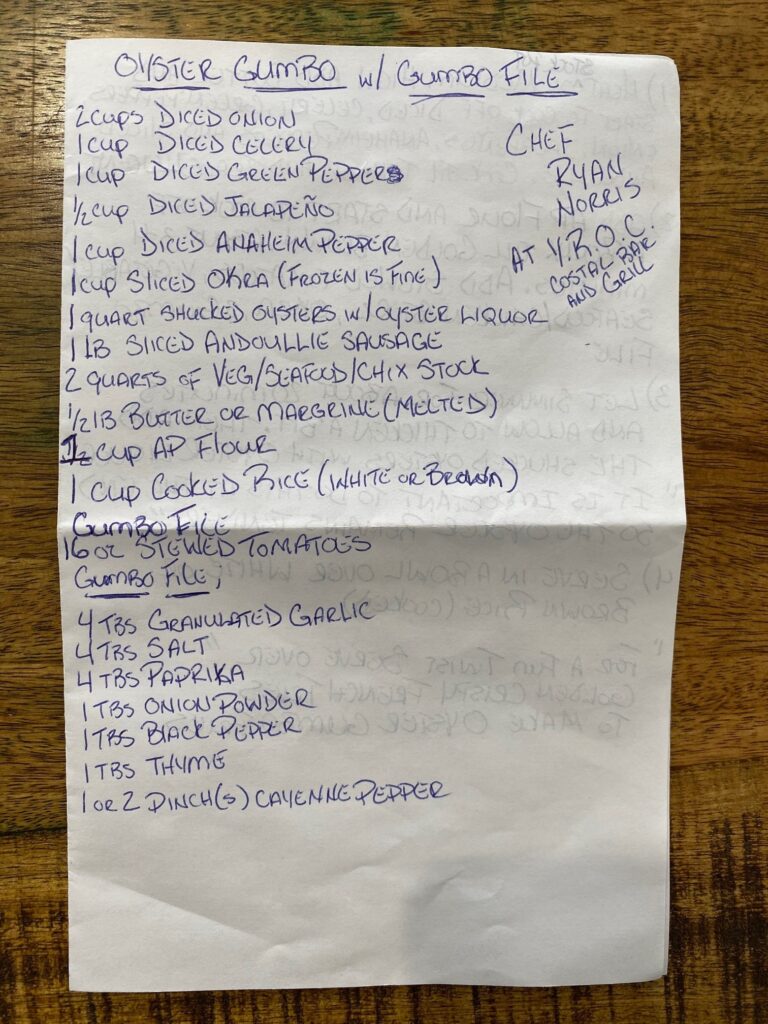 OYSTER GUMBO w/ GUMBO FILE
CHEF
RYAN
NORRIS
AT Y.R.O.C.
COSTAL BAR
AND GRILL
2 CUPS DICED ONION
1 CUP DICED CELERY
1 CUP DICED GREEN PEPPERS
1/2 CUP DICED JALAPEÑO
1 CUP DICED ANAHEIM PEPPER
1 CUP SLICED OKRA (FROZEN IS FINE)
1 QUART SHUCKED OYSTERS W/OYSTER LIQUOR
1 LB SLICED ANDOUILLIE SAUSAGE
2 QUARTS OF VEG/SEAFOOD/CHIX STOCK
1/2 LB BUTTER OR MARGRINE (MELTED)
CUP AP FLOUR
1 CUP COOKED RICE (WHITE OR BROWN)
GUMBO FILE
16 OZ STEWED TOMATOES
GUMBO FILE;
4 TBS GRANULATED GARLIC
4 TBS SALT
4 TBS PAPRIKA
1 TBS ONION POWDER
1 TBS BLACK PEPPER
1 TBS THYME
1 OR 2 PINCH(S) CAYENNE PEPPER